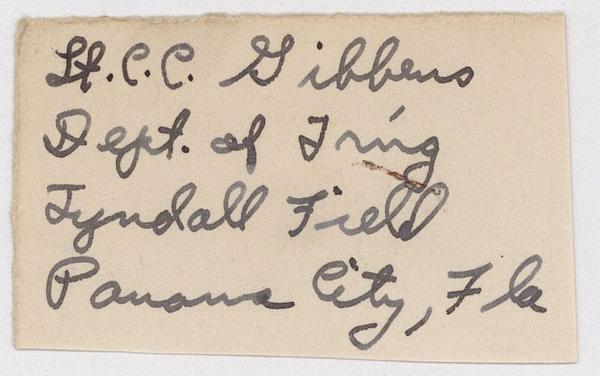 Lt. C.C. Gibbens
Dept. of Tr'ng
Tyndall Field
Panama City, Fla